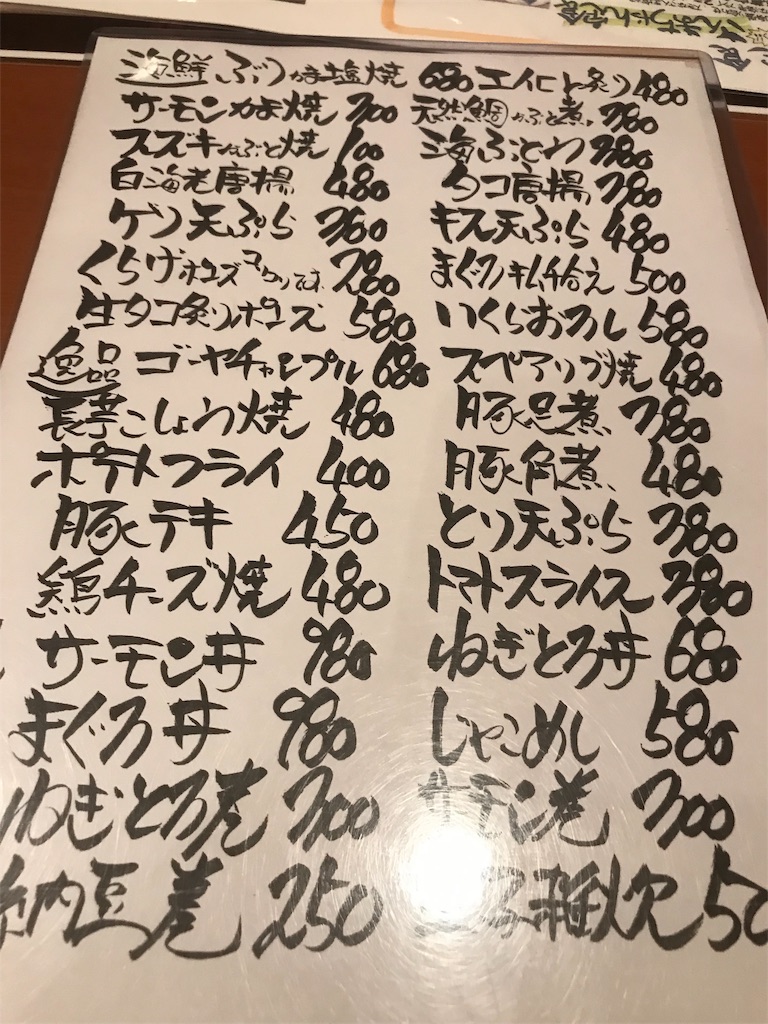 海鮮 ぶりかま塩焼 680 エイヒレ炙り 480
サーモンかま焼 300 天然鯛かぶと煮 380
スズキかぶと焼 100 海ぶどう 380
白海老唐揚 480 タコ唐揚 380
ゲソ天ぷら 360 キス天ぷら 480
くらげポンズ コリコリです 280 まぐろキムチ和え 500
生タコ炙りポンズ 580 いくらおろし 580
逸品 ゴーヤチャンプル 680 スペアリブ焼 480
長芋こしょう焼 480 豚足煮 380
ポテトフライ 400 豚角煮 480
豚テキ 450 とり天ぷら 380
鶏チーズ焼 480 トマトスライス 380
サーモン丼 980 ねぎとろ丼 680
まぐろ丼 980 しゃこめし 580
ねぎとろ巻 300 サーモン巻 300
納豆巻 250 雑炊 50